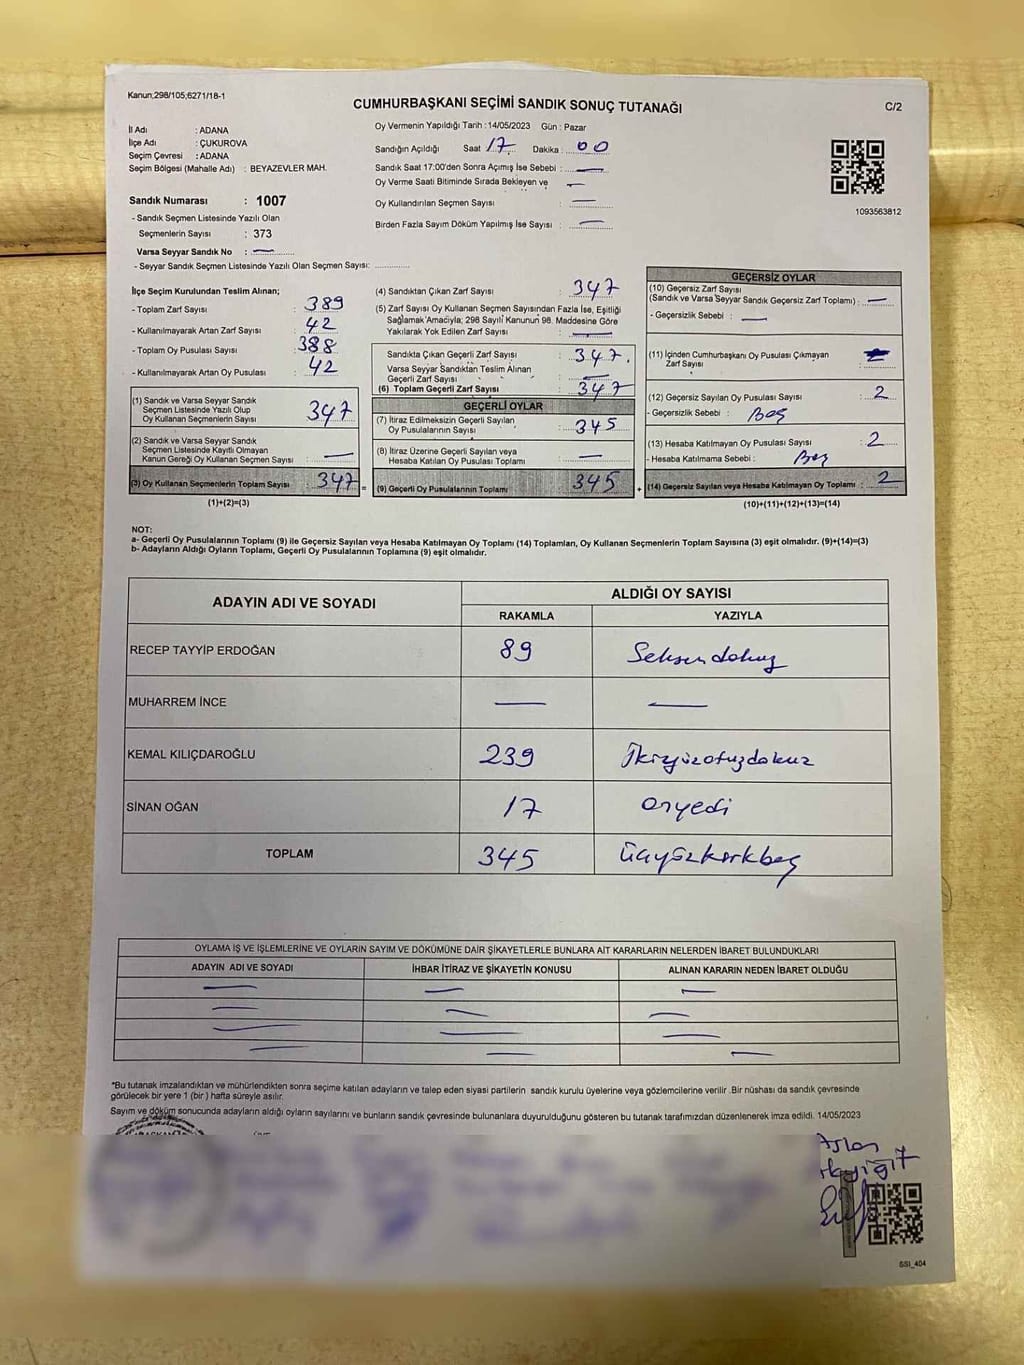 Kanun;298/105;6271/18-1
CUMHURBAŞKANI SEÇİMİ SANDIK SONUÇ TUTANAĞI
C/2
İl Adı : ADANA
İlçe Adı : ÇUKUROVA
Seçim Çevresi : ADANA
Seçim Bölgesi (Mahalle Adı) : BEYAZEVLER MAH.
Sandık Numarası : 1007
- Sandık Seçmen Listesinde Yazılı Olan
Seçmenlerin Sayısı : 373
Varsa Seyyar Sandık No : —
- Seyyar Sandık Seçmen Listesinde Yazılı Olan Seçmen Sayısı:
Oy Vermenin Yapıldığı Tarih :14/05/2023 Gün : Pazar
Sandığın Açıldığı Saat 17 Dakika : 00
Sandık Saat 17:00'den Sonra Açımış İse Sebebi : —
Oy Verme Saati Bitiminde Sırada Bekleyen ve —
Oy Kullandırılan Seçmen Sayısı : —
Birden Fazla Sayım Döküm Yapılmış İse Sayısı : —
1093563812
İlçe Seçim Kurulundan Teslim Alınan;
- Toplam Zarf Sayısı : 389
- Kullanılmayarak Artan Zarf Sayısı : 42
- Toplam Oy Pusulası Sayısı : 388
- Kullanılmayarak Artan Oy Pusulası : 42
(1) Sandık ve Varsa Seyyar Sandık
Seçmen Listesinde Yazılı Olup
Oy Kullanan Seçmenlerin Sayısı : 347
(2) Sandık ve Varsa Seyyar Sandık
Seçmen Listesinde Kayıtlı Olmayan
Kanun Gereği Oy Kullanan Seçmen Sayısı : —
(3) Oy Kullanan Seçmenlerin Toplam Sayısı : 347 =
(1)+(2)=(3)
(4) Sandıktan Çıkan Zarf Sayısı : 347
(5) Zarf Sayısı Oy Kullanan Seçmen Sayısından Fazla İse, Eşitliği
Sağlamak Amacıyla; 298 Sayılı Kanunun 98. Maddesine Göre
Yakılarak Yok Edilen Zarf Sayısı : —
Sandıkta Çıkan Geçerli Zarf Sayısı : 347.
Varsa Seyyar Sandıktan Teslim Alınan
Geçerli Zarf Sayısı : —
(6) Toplam Geçerli Zarf Sayısı : 347
GEÇERLİ OYLAR
(7) İtiraz Edilmeksizin Geçerli Sayılan
Oy Pusulalarının Sayısı : 345
(8) İtiraz Üzerine Geçerli Sayılan veya
Hesaba Katılan Oy Pusulası Toplamı : —
(9) Geçerli Oy Pusulalarının Toplamı : 345 +
GEÇERSİZ OYLAR
(10) Geçersiz Zarf Sayısı
(Sandık ve Varsa Seyyar Sandık Geçersiz Zarf Toplamı) : —
- Geçersizlik Sebebi : —
(11) İçinden Cumhurbaşkanı Oy Pusulası Çıkmayan
Zarf Sayısı :
(12) Geçersiz Sayılan Oy Pusulası Sayısı : 2
- Geçersizlik Sebebi : Boş
(13) Hesaba Katılmayan Oy Pusulası Sayısı : 2
- Hesaba Katılmama Sebebi : Boş
(14) Geçersiz Sayılan veya Hesaba Katılmayan Oy Toplamı : 2
(10)+(11)+(12)+(13)=(14)
NOT:
a- Geçerli Oy Pusulalarının Toplamı (9) ile Geçersiz Sayılan veya Hesaba Katılmayan Oy Toplamı (14) Toplamları, Oy Kullanan Seçmenlerin Toplam Sayısına (3) eşit olmalıdır. (9)+(14)=(3)
b- Adayların Aldığı Oyların Toplamı, Geçerli Oy Pusulalarının Toplamına (9) eşit olmalıdır.
ADAYIN ADI VE SOYADI ALDIĞI OY SAYISI
RAKAMLA YAZIYLA
RECEP TAYYİP ERDOĞAN 89 Seksendokuz
MUHARREM İNCE — —
KEMAL KILIÇDAROĞLU 239 İkiyüzotuzdokuz
SİNAN OĞAN 17 onyedi
TOPLAM 345 üçyüzkırkbeş
OYLAMA İŞ VE İŞLEMLERİNE VE OYLARIN SAYIM VE DÖKÜMÜNE DAİR ŞİKAYETLERLE BUNLARA AİT KARARLARIN NELERDEN İBARET BULUNDUKLARI
ADAYIN ADI VE SOYADI İHBAR İTİRAZ VE ŞİKAYETİN KONUSU ALINAN KARARIN NEDEN İBARET OLDUĞU
— — —
— — —
— — —
— — —
*Bu tutanak imzalandıktan ve mühürlendikten sonra seçime katılan adayların ve talep eden siyasi partilerin sandık kurulu üyelerine veya gözlemcilerine verilir .Bir nüshası da sandık çevresinde
görülecek bir yere 1 (bir ) hafta süreyle asılır.
Sayım ve döküm sonucunda adayların aldığı oyların sayılarını ve bunların sandık çevresinde bulunanlara duyurulduğunu gösteren bu tutanak tarafımızdan düzenlenerek imza edildi. 14/05/2023
Aslan
SSI_404